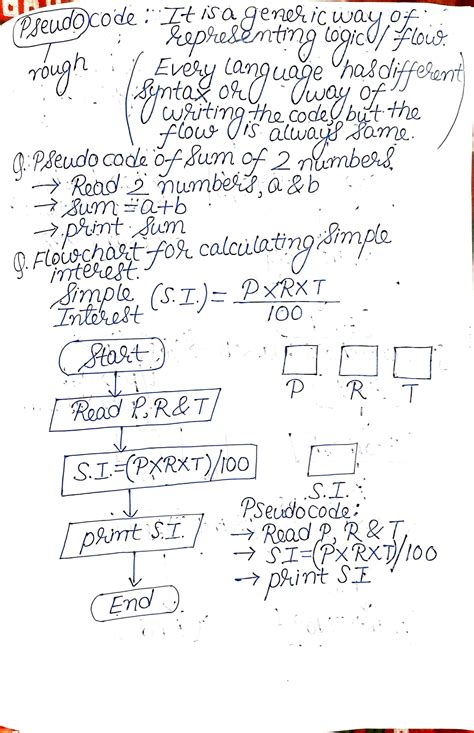 Pseudocode: It is a generic way of
representing logic / flow.
rough
(Every language has different
syntax or way of
writing the code, but the
flow is always same.)
Q. Pseudocode of Sum of 2 numbers.
→ Read 2 numbers, a & b
→ Sum = a+b
→ print Sum
Q. Flowchart for calculating Simple
interest.
Simple Interest (S.I.) = P×R×T / 100
Start
P R T
Read P, R & T
S.I.=(P×R×T)/100
S.I.
print S.I.
End
Pseudocode:
→ Read P, R & T
→ SI=(P×R×T)/100
→ print SI